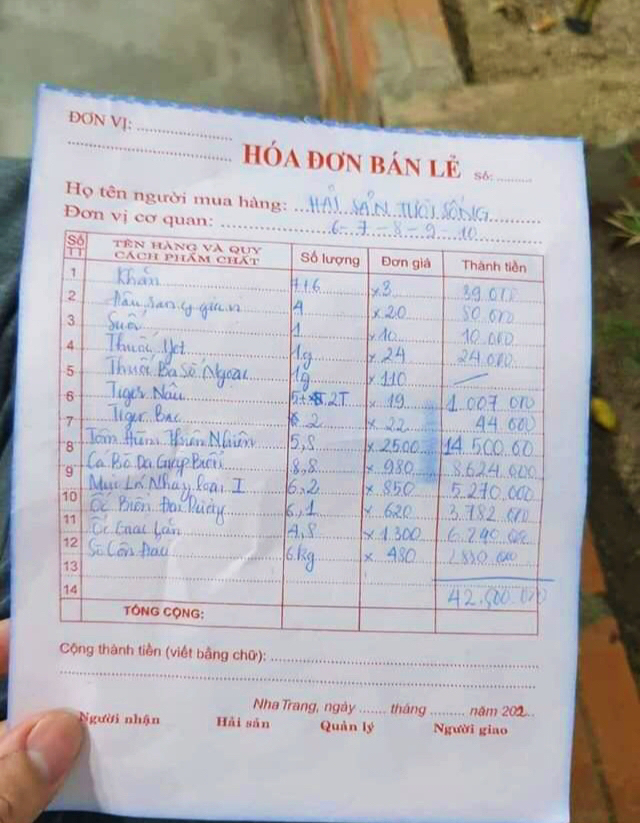 ĐƠN VỊ: ....................
HÓA ĐƠN BÁN LẺ Số: ........
Họ tên người mua hàng: HẢI SẢN TƯƠI SỐNG
Đơn vị cơ quan: 6-7-8-9-10
Số TT TÊN HÀNG VÀ QUY CÁCH PHẨM CHẤT Số lượng Đơn giá Thành tiền
1 Khăn 7+6 x3 39.000
2 gia vị 4 x20 80.000
3 Suối 1 x10 10.000
4 Thuốc 1g x24 24.000
5 Thuốc Ba Số Ngoại 1g x110
6 Tiger Nâu 2T x19 1.007.000
7 Tiger Bạc 2 x22 44.000
8 Tôm Hùm Thiên Nhiên 5,8 x2500 14.500.00
9 Cá Bò Da Giáp Biển 8,8 x980 8.624.000
10 Mực Lá Nháy loại I 6,2 x850 5.270.000
11 Ốc Biển 6,1 x620 3.782.000
12 Ốc Lấn 4,8 x1300 6.240.000
13 Sò Côn Đảo 6kg x480 2880.000
14 42.500.000
TỔNG CỘNG:
Cộng thành tiền (viết bằng chữ): ....................
Nha Trang, ngày ...... tháng ........ năm 202..
Người nhận Hải sản Quản lý Người giao